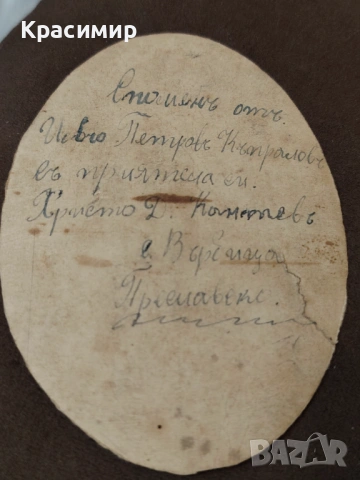 Красимир
Споменъ отъ.
Илью Петровъ Къпраловъ
съ приятеля си.
Христо Д. Кънчевъ
с. Върбица
Преславско.
BAZAR
bg